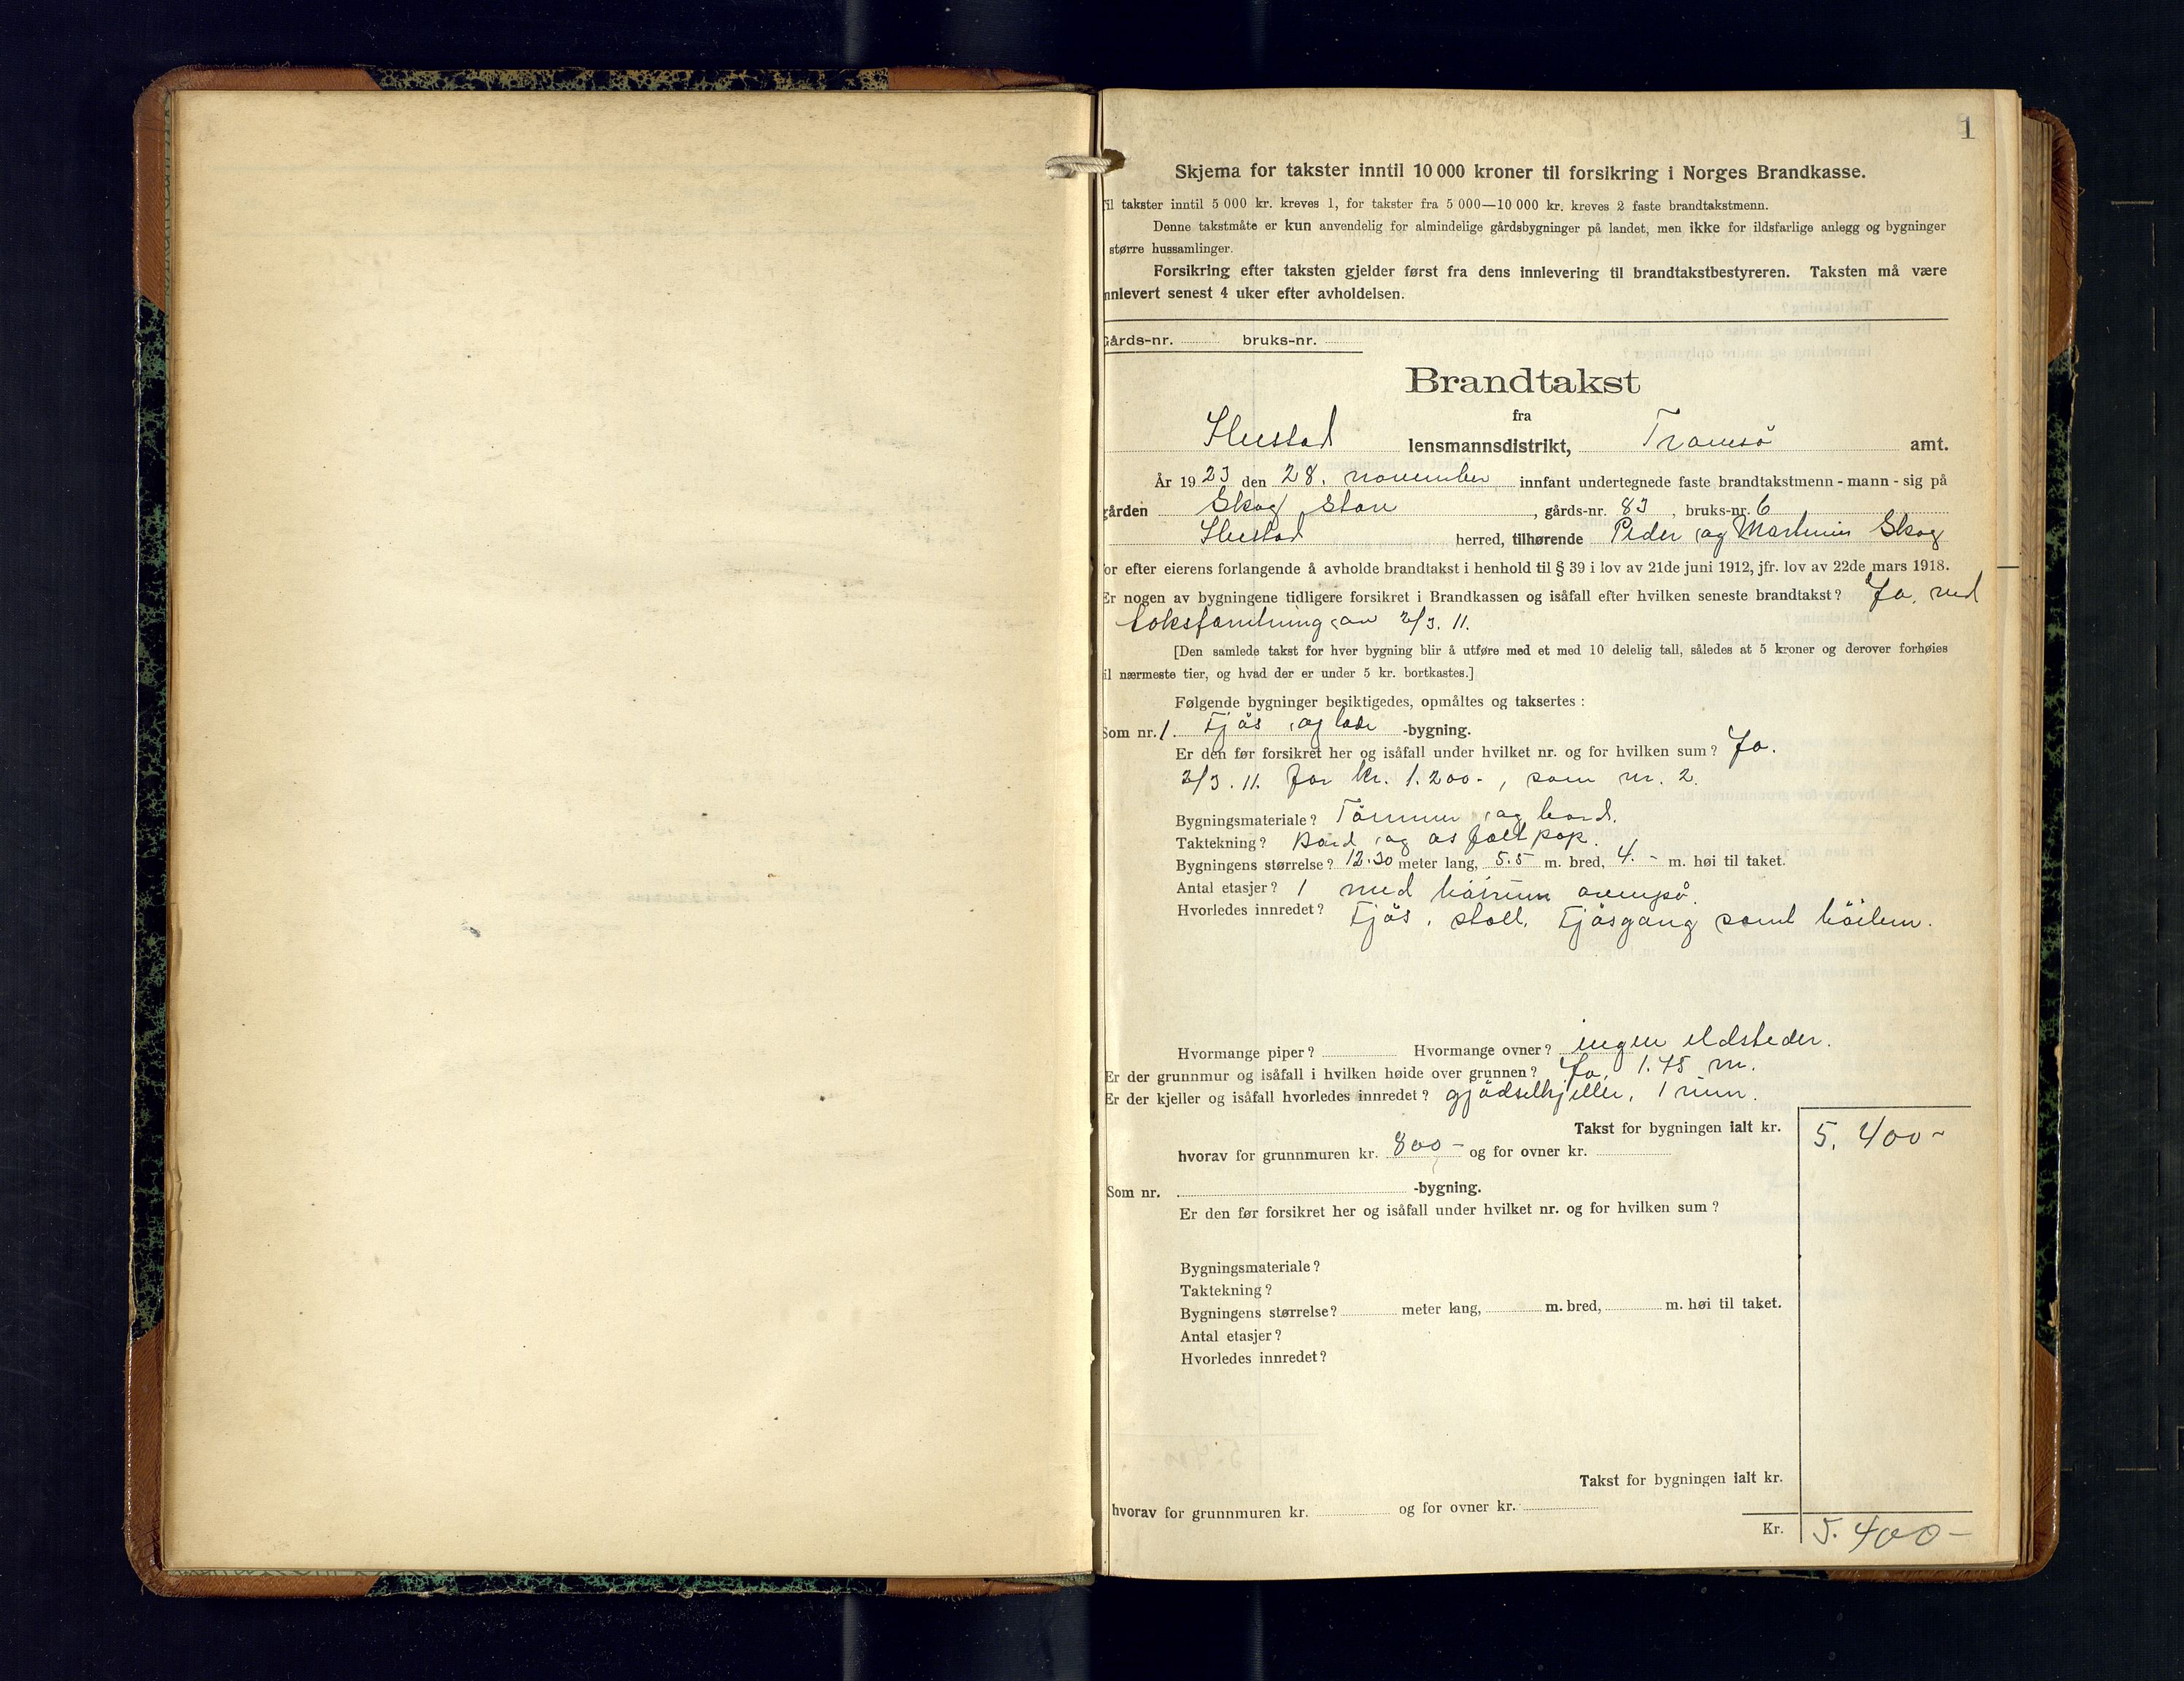 1
Skjema for takster inntil 10 000 kroner til forsikring i Norges Brandkasse.
il takster inntil 5 000 kr. kreves 1, for takster fra 5 000—10 000 kr. kreves 2 faste brandtakstmenn.
Denne takstmåte er kun anvendelig for almindelige gårdsbygninger på landet, men ikke for ildsfarlige anlegg og bygninger
større hussamlinger.
Forsikring efter taksten gjelder først fra dens innlevering til brandtakstbestyreren. Taksten må være
nnlevert senest 4 uker efter avholdelsen.
Gårds-nr. bruks-nr.
Brandtakst
fra
Hustad lensmannsdistrikt, Tromsö amt.
År 1923 den 28. november innfant undertegnede faste brandtakstmenn - mann - sig på
gården Skog store, gårds-nr. 83, bruks-nr. 6
Hustad herred, tilhørende Peder og Martinus Skog
or efter eierens forlangende å avholde brandtakst i henhold til § 39 i lov av 21de juni 1912, jfr. lov av 22de mars 1918.
Er nogen av bygningene tidligere forsikret i Brandkassen og isåfall efter hvilken seneste brandtakst? Ja, ved
av 2/3. 11.
[Den samlede takst for hver bygning blir å utføre med et med 10 delelig tall, således at 5 kroner og derover forhøies
il nærmeste tier, og hvad der er under 5 kr. bortkastes.]
Følgende bygninger besiktigedes, opmåltes og taksertes:
Som nr. 1 Fjös og lade -bygning.
Er den før forsikret her og isåfall under hvilket nr. og for hvilken sum? Ja.
2/3. 11. for kr. 1.200-, som nr. 2.
Bygningsmateriale? Tömmer og bord.
Taktekning? Bord og asfaltpap.
Bygningens størrelse? 12.30 meter lang, 5.5 m. bred, 4.- m. høi til taket.
Antal etasjer? 1 med höirum ovenpå.
Hvorledes innredet? Fjös, stall, Fjösgang samt höilem.
Hvormange piper? Hvormange ovner? ingen ildsteder.
Er der grunnmur og isåfall i hvilken høide over grunnen? Ja, 1.75 m.
Er der kjeller og isåfall hvorledes innredet? gjödselkjeller, 1 rum.
Takst for bygningen ialt kr. 5.400-
hvorav for grunnmuren kr. 800- og for ovner kr.
Som nr. -bygning.
Er den før forsikret her og isåfall under hvilket nr. og for hvilken sum?
Bygningsmateriale?
Taktekning?
Bygningens størrelse? meter lang, m. bred, m. høi til taket.
Antal etasjer?
Hvorledes innredet?
Takst for bygningen ialt kr.
hvorav for grunnmuren kr. og for ovner kr.
Kr. 5.400-